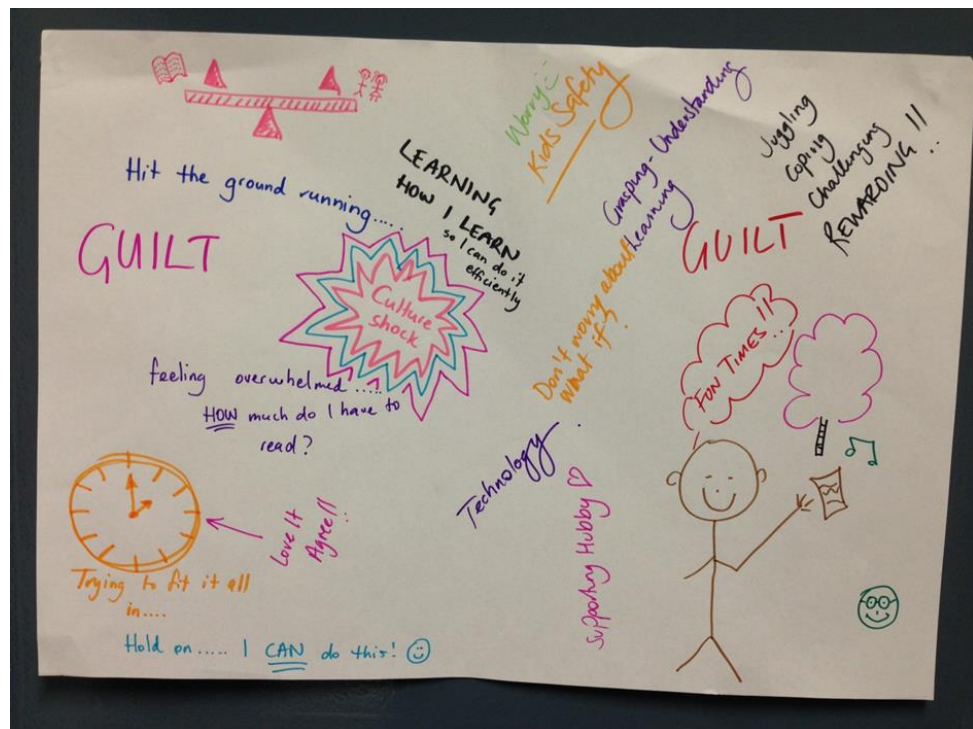 Hit the ground running.....
GUILT
LEARNING
HOW I LEARN
so I can do it
efficiently
Culture
shock
feeling overwhelmed.....
HOW much do I have to
read?
Love It
Agree!!
Trying to fit it all
in....
Hold on..... I CAN do this!
Worry:-
Kids Safety
Grasping - Understanding
Learning
Don't worry about
what if?
Technology
Supporting Hubby
Juggling
Coping
Challenging
REWARDING!!
GUILT
FUN TIMES!!